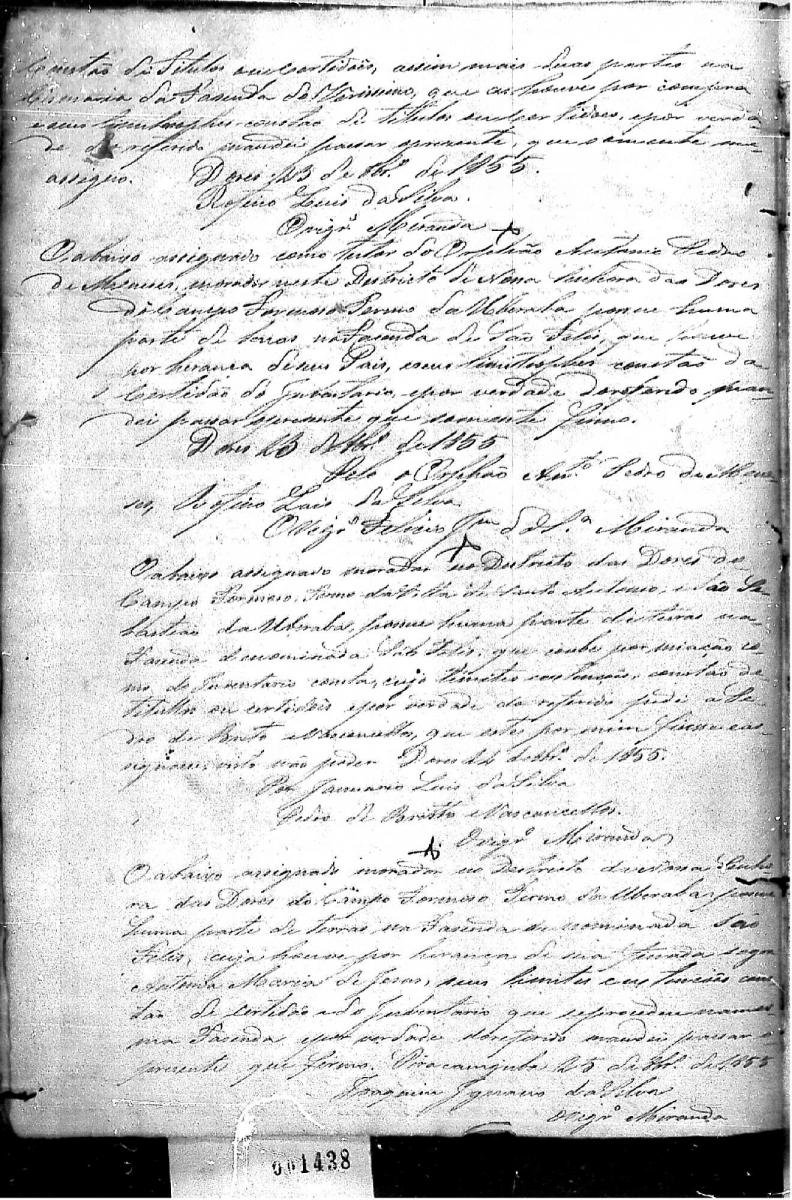 Constão de Titulos ou Certidão, assim mais duas partes na
Cismaria da Fazenda do Verissimo, que as houve por compra
e seus limitrophes constão de titulos ou certidoes, e por verda-
de do referido mandei passar o presente, que somente me
assigno. Dores 23 de 8br.º de 1855.
Rofino Luis da Silva.
Origr.º Miranda
O abaixo assignado como tutor do Orphão Antonio Pedro
de Menezes, morador neste Districto de Nossa Senhora das Dores
do Campo Formoso Termo da Uberaba possue huma
parte de terras na Fazenda de São Felis, que houve
por herança de seu Pai, e seus limitrophes constão da
Certidão do Inventario, e por verdade do referido man-
dei passar o presente que somente firmo.
Dores 23 de 8br.º de 1855
Pelo o Orphão Ant.º Pedro de Mene-
zes, Rofino Luis da Silva
O Migr.º Miranda
O abaixo assignado morador no Destricto das Dores do
Campo Formoso, Termo da Villa de Santo Antonio, e São Se-
bastião da Uberaba, possue huma parte de terras na
Fazenda denominada São Felis, que coube por miação co-
mo do Inventario consta, cujo limites e extenção, constão de
titullos ou certidois e por verdade do referido pedi a Pe-
dro de Brito e Vasconcellos, que este por mim fizesse e as-
signasse, visto não poder. Dores 24 de 8br.º de 1855.
Por Januario Luis da Silva
Pedro de Britto e Vasconcellos.
Origr.º Miranda
O abaixo assignado morador no Destricto de Nossa Senho-
ra das Dores do Campo Formoso Termo da Uberaba, possue
huma parte de terras, na Fazenda denominada São
Felis, cuja houve por herança de sua finada sogra
Antonia Maria de Jesus, seus limites e extenção cons-
tão de certidão e do Inventario que se procedeu na mes-
ma Fazenda e por verdade do referido mandei passar o
presente que firmo. 25 de 8br.º de 1855
Joaquim Ignacio da Silva
Origr.º Miranda
001438